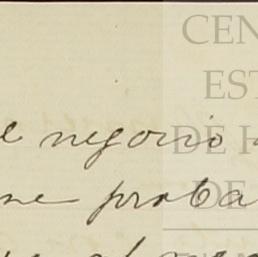 CEN
EST
e negocio
DE H
ne proba
DE